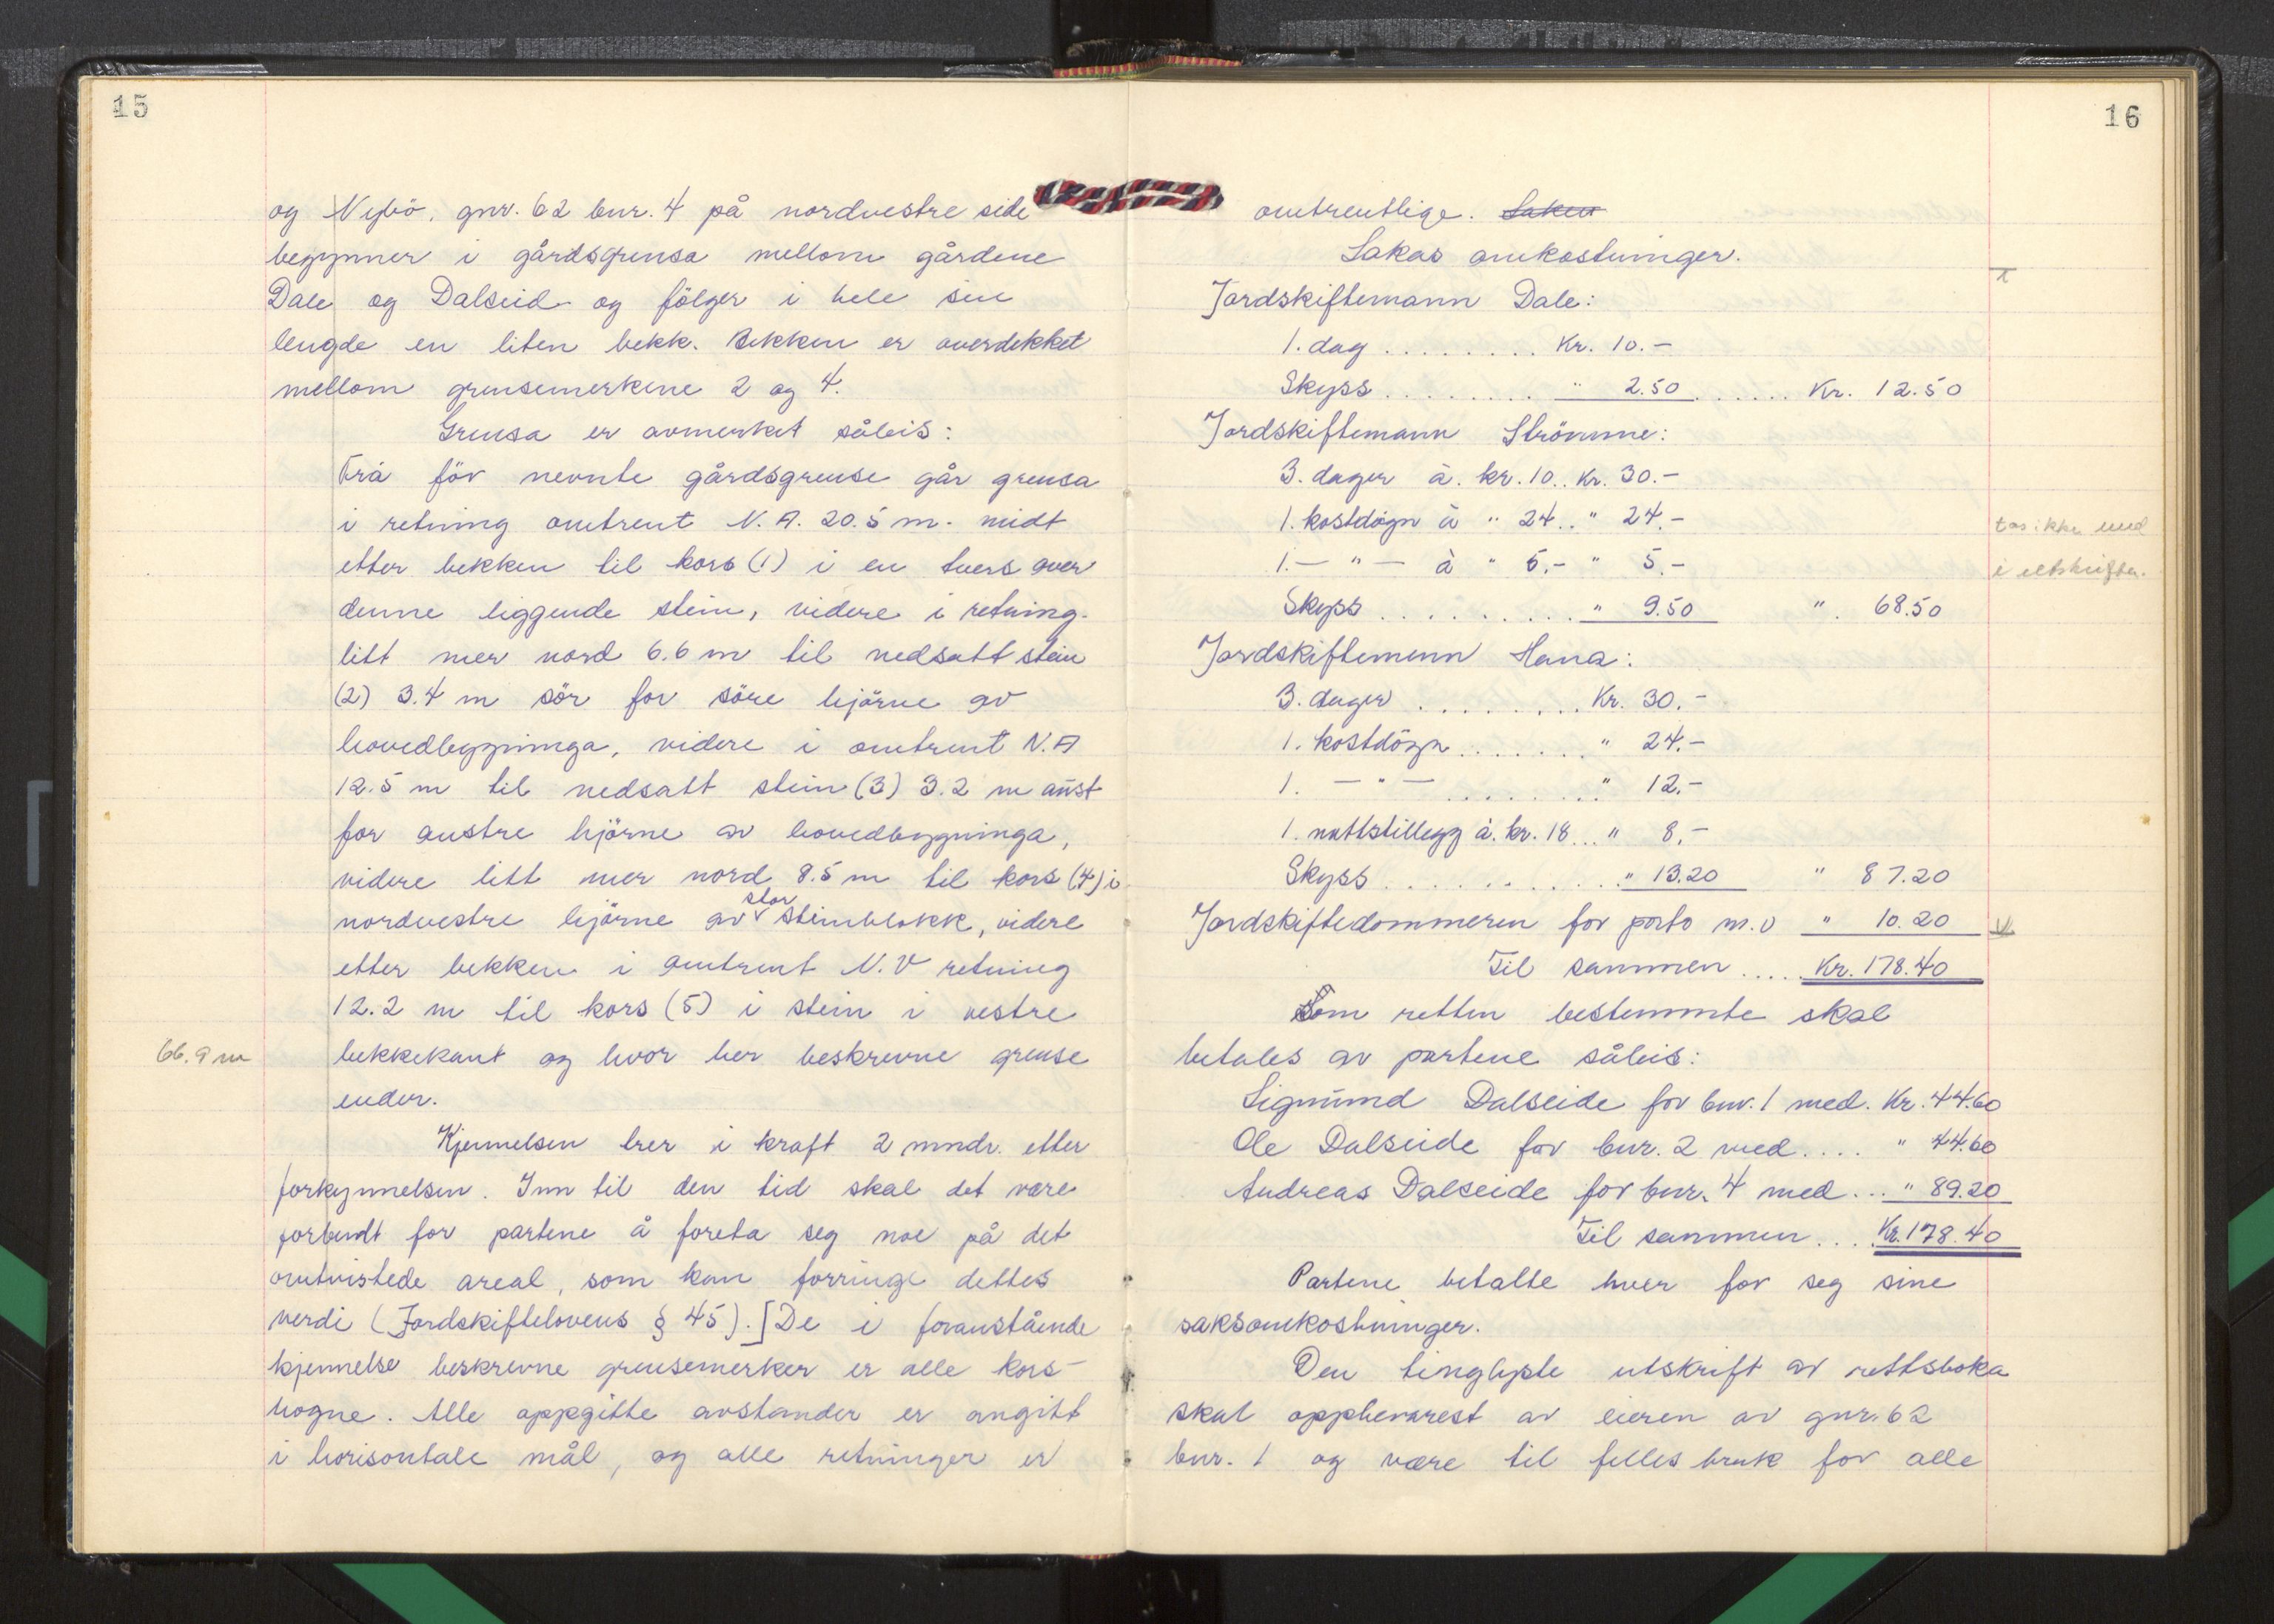 15
og Nybö, gnr. 62 bnr. 4 på nordvestre side
begynner i gårdsgrensa mellom gårdene
Dale og Dalseid og fölger i hele sin
lengde en liten bekk. Bekken er overdekket
mellom grensemerkene 2 og 4.
Grensa er avmerket såleis:
Frå för nevnte gårdsgrense går grensa
i retning omtrent N.A. 20.5 m. midt
etter bekken til kors (1) i en tvers over
denne liggende stein, videre i retning
litt mer nord 6.6 m til nedsatt stein
(2) 3.4 m sör for söre hjörne av
hovedbygninga, videre i omtrent N.A
12.5 m til nedsatt stein (3) 3.2 m aust
for austre hjörne av hovedbygninga,
videre litt mer nord 8.5 m til kors (4) i
nordvestre hjörne av stor steinblokk, videre
etter bekken i omtrent N.V retning
12.2 m til kors (5) i stein i vestre
66.9 m bekkekant og hvor her beskrevne grense
ender.
Kjennelsen trer i kraft 2 mndr. etter
forkynnelsen. Inn til den tid skal det være
forbudt for partene å foreta seg noe på det
omtvistede areal, som kan forringe dettes
verdi (Jordskiftelovens § 45). [De i foranstående
kjennelse beskrevne grensemerker er alle kors-
hogne. Alle oppgitte avstander er angitt
i horisontale mål, og alle retninger er
16
omtrentlige. Saken
Sakas omkostninger.
Jordskiftemann Dale:
1. dag ........ Kr. 10.-
Skyss ........ " 2.50 ...... Kr. 12.50
Jordskiftemann Strömme:
3. dager à. kr. 10.. Kr. 30.-
1. kostdögn à " 24.. " 24.-
tas ikke med
1. - " - à " 5.- " 5.-
i utskriften.
Skyss .......... " 9.50 " 68.50
Jordskiftemenn Hana:
3. dager ........ Kr. 30.-
1. kostdögn ....... " 24.-
1. - " - ........ " 12.-
1. nattstillegg à. kr. 18 ... " 8.-
Skyss ........... " 13.20 " 87.20
Jordskiftedommeren for porto m.v " 10.20
Til sammen ..... Kr. 178.40
Som retten bestemmte skal
betales av partene såleis:
Sigmund Dalseide for bnr. 1 med. Kr. 44.60
Ole Dalseide for bnr. 2 med .... " 44.60
Andreas Dalseide for bnr. 4 med ... " 89.20
Til sammen .... Kr. 178.40
Partene betalte hver for seg sine
saksomkostninger.
Den tinglyste utskrift av rettsboka
skal oppbevarest av eieren av gnr. 62
bnr. 1 og være til felles bruk for alle